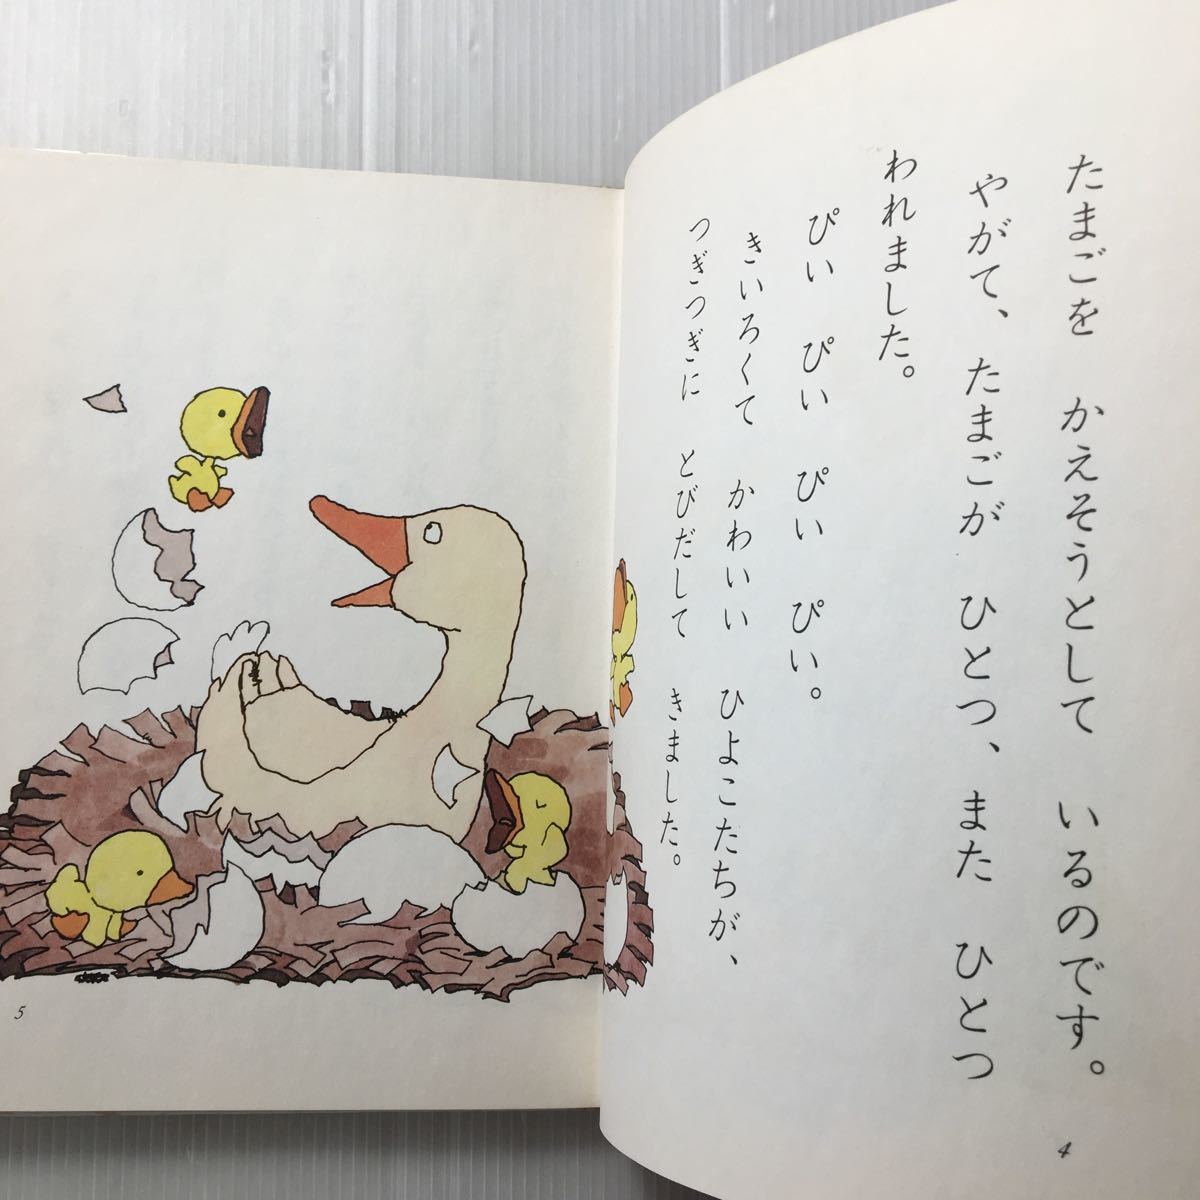 たまごを　かえそうとして　いるのです。
やがて、たまごが　ひとつ、また　ひとつ
われました。
ぴい　ぴい　ぴい　ぴい。
きいろくて　かわいい　ひよこたちが、
つぎつぎに　とびだして　きました。
4
5